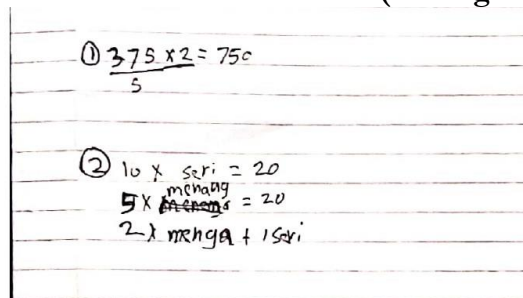 ① 375 x 2 = 750
5
② 10 x seri = 20
5 x menang = 20
2 x menga + 1 seri